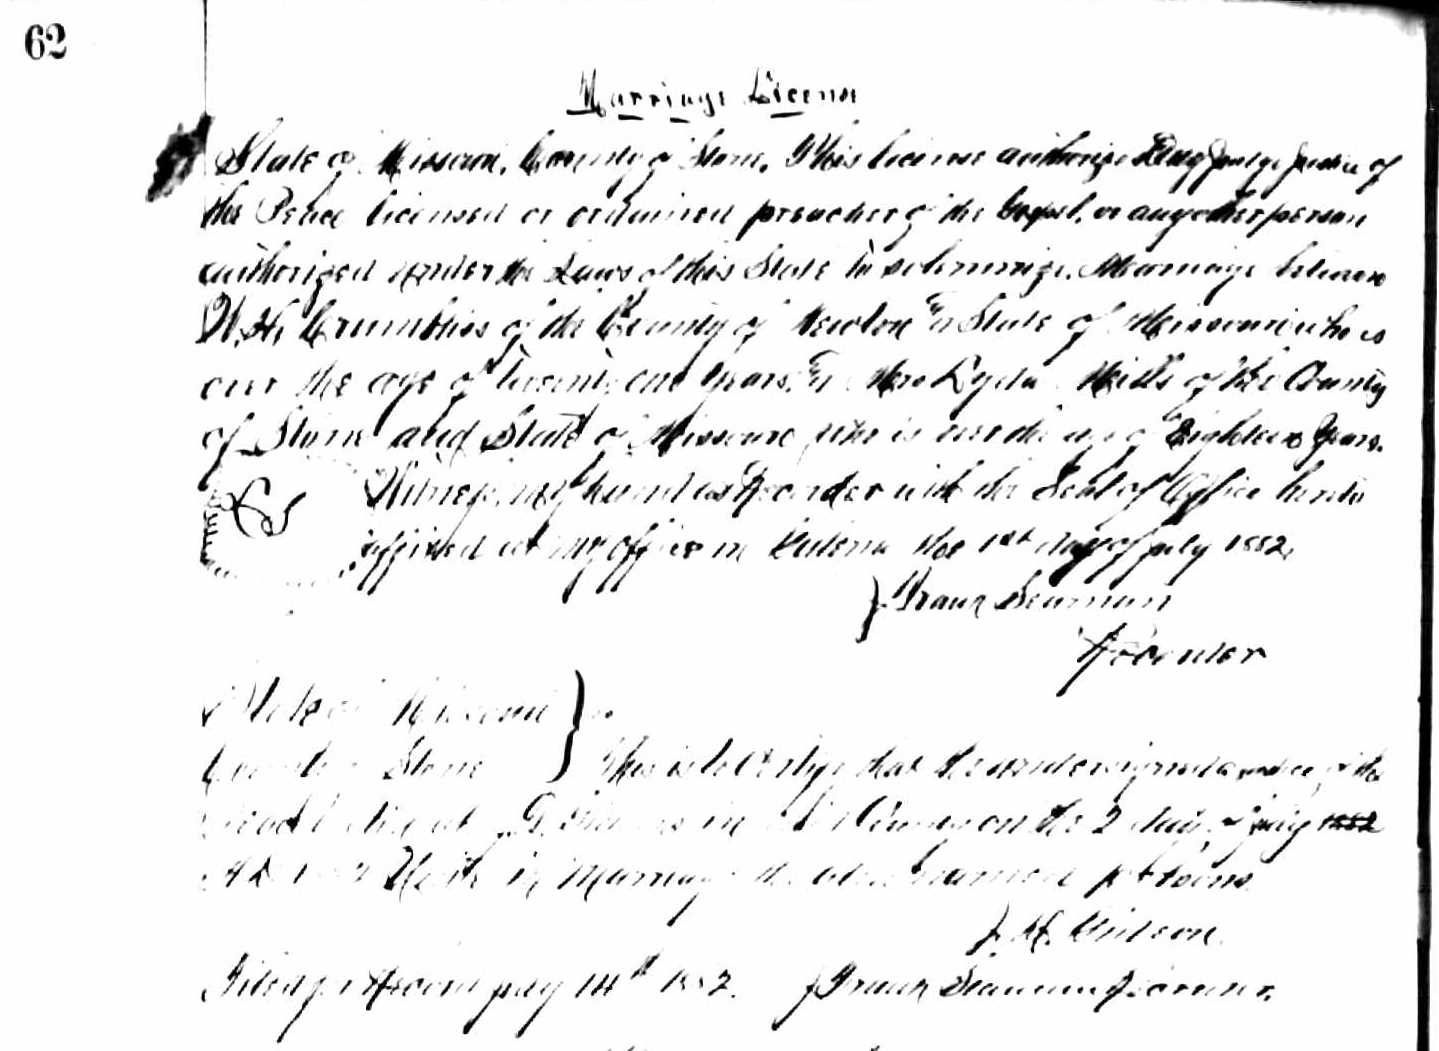 62
Marriage License
State of Missouri, County of Stone. This license authorizes any Judge Justice of
the Peace licensed or ordained preacher of the Gospel, or any other person
authorized under the Laws of this State to solemnize Marriage between
W. H. Crumblis of the County of Newton in State of Missouri who is
over the age of twenty one years, Mrs Lydia Mills of the County
of Stone and State of Missouri who is over the age of Eighteen Years.
Witness my hand as Recorder with the Seal of Office hereto
affixed at my office in Galena the 1st day of July 1882,
Frank Seaman
Recorder
State of Missouri
County Stone This is to Certify that the undersigned Justice of the
Peace did at in said County on the 2 day of July 1882
AD Unite in Marriage the above named persons
J. H. Wilson
Filed for Record July 14th 1882. Frank Seaman Recorder.